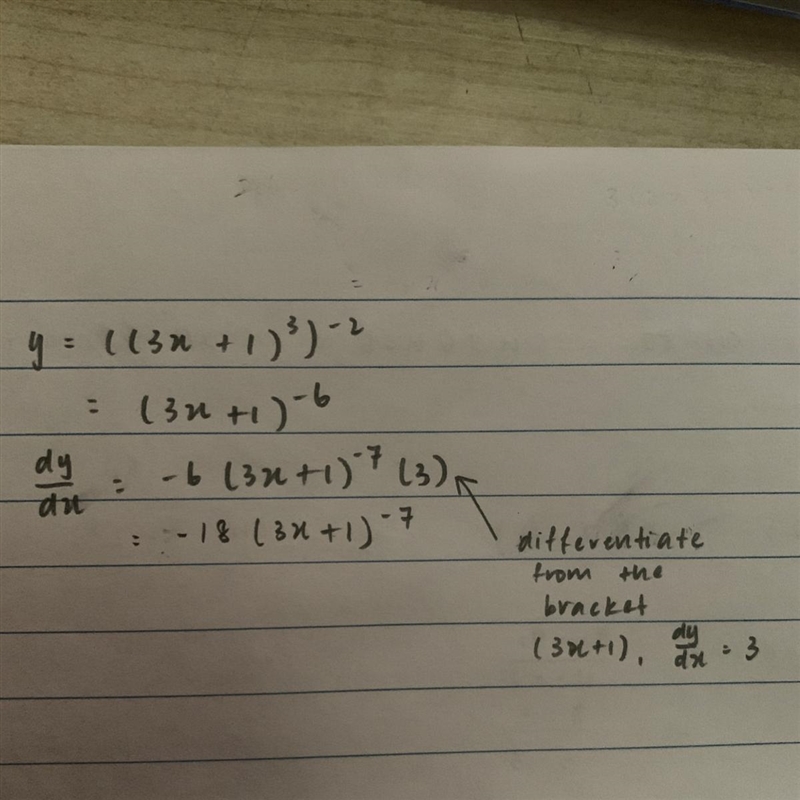 y = ((3x + 1)³)⁻²
= (3x + 1)⁻⁶
dy/dx = -6 (3x + 1)⁻⁷ (3)
= -18 (3x + 1)⁻⁷
differentiate
from the
bracket
(3x+1), dy/dx = 3